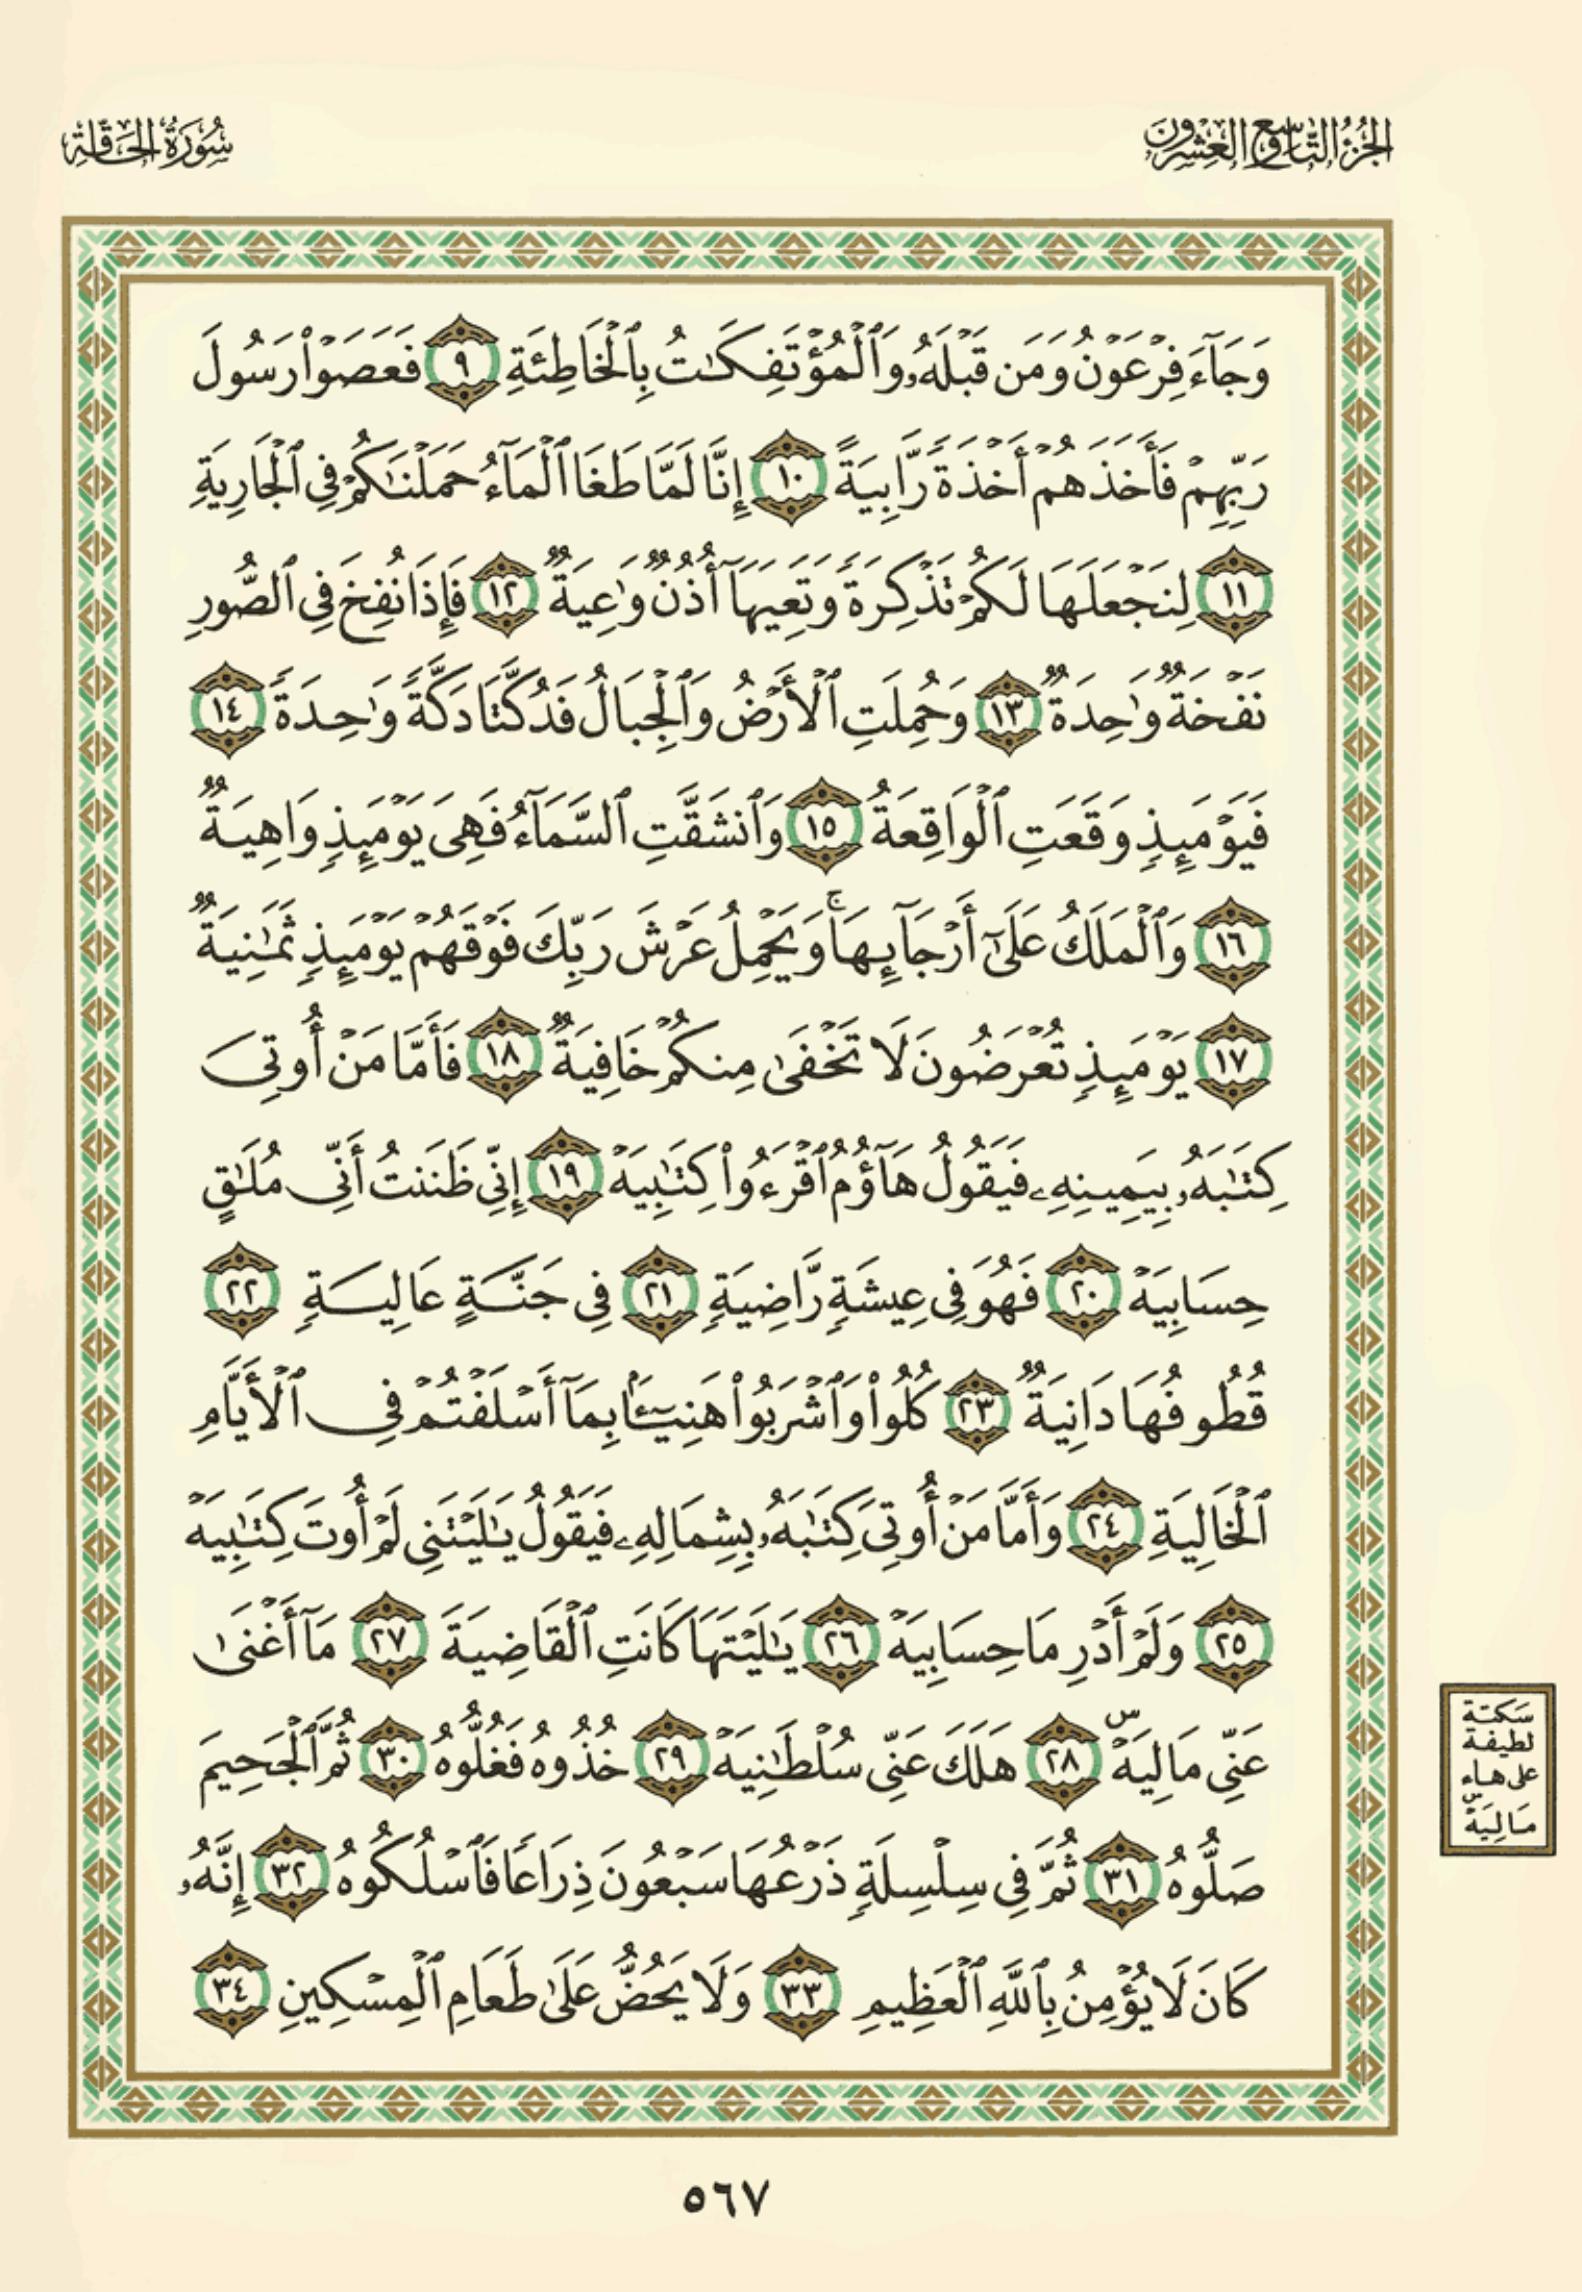 الجزء التاسع والعشرون
سورة الحاقة
وَجَآءَ فِرْعَوْنُ وَمَن قَبْلَهُۥ وَٱلْمُؤْتَفِكَـٰتُ بِٱلْخَاطِئَةِ ٩ فَعَصَوْا۟ رَسُولَ
رَبِّهِمْ فَأَخَذَهُمْ أَخْذَةً رَّابِيَةً ١٠ إِنَّا لَمَّا طَغَا ٱلْمَآءُ حَمَلْنَـٰكُمْ فِى ٱلْجَارِيَةِ
١١ لِنَجْعَلَهَا لَكُمْ تَذْكِرَةً وَتَعِيَهَآ أُذُنٌ وَٰعِيَةٌ ١٢ فَإِذَا نُفِخَ فِى ٱلصُّورِ
نَفْخَةٌ وَٰحِدَةٌ ١٣ وَحُمِلَتِ ٱلْأَرْضُ وَٱلْجِبَالُ فَدُكَّتَا دَكَّةً وَٰحِدَةً ١٤
فَيَوْمَئِذٍ وَقَعَتِ ٱلْوَاقِعَةُ ١٥ وَٱنشَقَّتِ ٱلسَّمَآءُ فَهِىَ يَوْمَئِذٍ وَاهِيَةٌ
١٦ وَٱلْمَلَكُ عَلَىٰٓ أَرْجَآئِهَا ۚ وَيَحْمِلُ عَرْشَ رَبِّكَ فَوْقَهُمْ يَوْمَئِذٍ ثَمَـٰنِيَةٌ
١٧ يَوْمَئِذٍ تُعْرَضُونَ لَا تَخْفَىٰ مِنكُمْ خَافِيَةٌ ١٨ فَأَمَّا مَنْ أُوتِىَ
كِتَـٰبَهُۥ بِيَمِينِهِۦ فَيَقُولُ هَآؤُمُ ٱقْرَءُوا۟ كِتَـٰبِيَهْ ١٩ إِنِّى ظَنَنتُ أَنِّى مُلَـٰقٍ
حِسَابِيَهْ ٢٠ فَهُوَ فِى عِيشَةٍ رَّاضِيَةٍ ٢١ فِى جَنَّةٍ عَالِيَةٍ ٢٢
قُطُوفُهَا دَانِيَةٌ ٢٣ كُلُوا۟ وَٱشْرَبُوا۟ هَنِيٓـًٔۢا بِمَآ أَسْلَفْتُمْ فِى ٱلْأَيَّامِ
ٱلْخَالِيَةِ ٢٤ وَأَمَّا مَنْ أُوتِىَ كِتَـٰبَهُۥ بِشِمَالِهِۦ فَيَقُولُ يَـٰلَيْتَنِى لَمْ أُوتَ كِتَـٰبِيَهْ
٢٥ وَلَمْ أَدْرِ مَا حِسَابِيَهْ ٢٦ يَـٰلَيْتَهَا كَانَتِ ٱلْقَاضِيَةَ ٢٧ مَآ أَغْنَىٰ
عَنِّى مَالِيَهْ ۜ ٢٨ هَلَكَ عَنِّى سُلْطَـٰنِيَهْ ٢٩ خُذُوهُ فَغُلُّوهُ ٣٠ ثُمَّ ٱلْجَحِيمَ
صَلُّوهُ ٣١ ثُمَّ فِى سِلْسِلَةٍ ذَرْعُهَا سَبْعُونَ ذِرَاعًا فَٱسْلُكُوهُ ٣٢ إِنَّهُۥ
كَانَ لَا يُؤْمِنُ بِٱللَّهِ ٱلْعَظِيمِ ٣٣ وَلَا يَحُضُّ عَلَىٰ طَعَامِ ٱلْمِسْكِينِ ٣٤
سَكتة
لطيفة
على هاء
مَالِيَهْ ۜ
٥٦٧